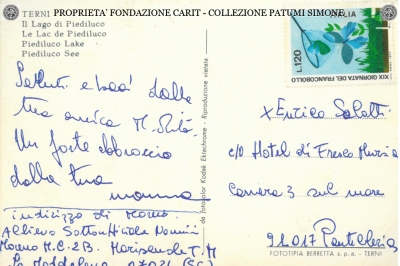 PROPRIETA' FONDAZIONE CARIT - COLLEZIONE PATUMI SIMONE
TERNI
Il Lago di Piediluco
Le Lac de Piediluco
Piediluco Lake
Piediluco See
Saluti e baci dalla
tua amica M. Rita
Un forte abbraccio
dalla tua
mamma
indirizzo di Momo
Allievo Sottonff.le
Moreno M.C.2B. Mariscuole T.M
La Maddalena 07024 (SS)
da fotocolor Kodak Ektachrome - Riproduzione vietata
ITALIA
L.120
XIX GIORNATA DEL FRANCOBOLLO
x Enrico
c/o Hotel di Fresco Mursia
Camera 3 sul mare
91017 Pantelleria
FOTOTIPIA BERRETTA s.p.a. - TERNI